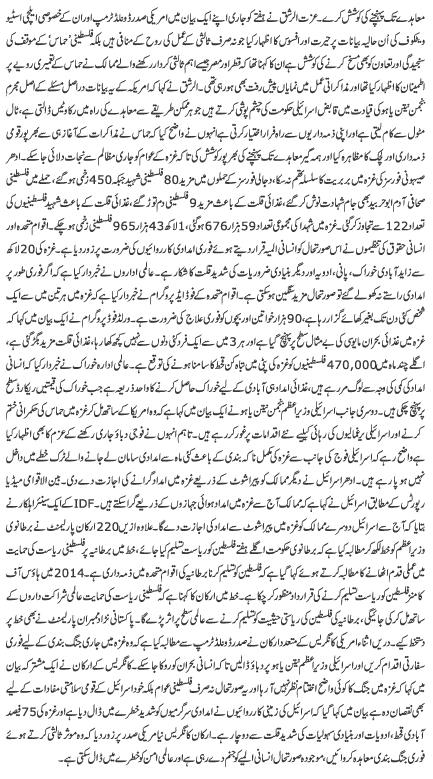 معاہدے تک پہنچنے کی کوشش کرے۔ عزت الرشق نے ہفتے کو جاری اپنے ایک بیان میں امریکی صدر ڈونلڈ ٹرمپ اور ان کے خصوصی ایلچی اسٹیو
ویٹکوف کی اُن حالیہ بیانات پر حیرت اور افسوس کا اظہار کیا جو نہ صرف ثالثی کے عمل کی روح کے منافی ہیں بلکہ فلسطینی حماس کے موقف کی
سنجیدگی اور تعاون کو بھی مسخ کرنے کی کوشش ہے ان کا کہنا تھا کہ قطر اور مصر جیسے اہم ثالثی کردار رکھنے والے ممالک نے حماس کے تعمیری رویے پر
اطمینان کا اظہار کیا تھا اور مذاکراتی عمل میں نمایاں پیش رفت بھی ہو رہی تھی۔ الرشق نے کہا کہ امریکا کے بیانات دراصل مسئلے کے اصل مجرم
بنجمن نیتن یاہو کی قیادت میں قابض اسرائیلی حکومت کی چشم پوشی کرتے ہیں جو ہر ممکن طریقے سے معاہدے کی راہ میں رکاوٹیں ڈالتی، ٹال
مٹول سے کام لیتی ہے اور اپنی ذمہ داریوں سے راہ فرار اختیار کرتی ہے انہوں نے واضح کیا کہ حماس نے مذاکرات کے آغاز ہی سے بھرپور قومی
ذمہ داری اور لچک کا مظاہرہ کیا اور ہمہ گیر معاہدے تک پہنچنے کی بھرپور کوشش کی تاکہ غزہ کے عوام کو جاری مظالم سے نجات دلائی جا سکے۔ ادھر
صیہونی فورسز کی غزہ میں بربریت کا سلسلہ تھم نہ سکا، دجالی فورسز کے حملوں میں مزید 80 فلسطینی شہید جبکہ 450 زخمی ہو گئے، حملے میں فلسطینی
صحافی آدم ابو ہربید بھی جام شہادت نوش کر گئے، غذائی قلت کے باعث مزید 9 فلسطینی دم توڑ گئے، غذائی قلت کے باعث شہید فلسطینیوں کی
تعداد 122 سے تجاوز کر گئی۔ غزہ میں شہدا کی مجموعی تعداد 59 ہزار 676 ہو گئی، 1 لاکھ 43 ہزار 965 فلسطینی زخمی ہو چکے۔ اقوام متحدہ اور
انسانی حقوق کی تنظیموں نے اس صورتحال کو انسانی المیہ قرار دیتے ہوئے فوری امدادی کارروائیوں کی ضرورت پر زور دیا ہے۔ غزہ کی 20 لاکھ
سے زاید آبادی خوراک، پانی، ادویہ اور دیگر بنیادی ضروریات کی شدید قلت کا شکار ہے۔ عالمی اداروں نے خبردار کیا ہے کہ اگر فوری طور پر
امدادی راستے نہ کھولے گئے تو صورتحال مزید سنگین ہو سکتی ہے۔ اقوام متحدہ کے فوڈ ایڈ پروگرام نے خبردار کیا ہے کہ غزہ میں ہر تین میں سے ایک
شخص کئی دن تک بغیر کھائے گزار رہا ہے، 90 ہزار خواتین اور بچوں کو فوری علاج کی ضرورت ہے۔ ورلڈ فوڈ پروگرام نے ایک بیان میں کہا کہ
غزہ میں غذائی بحران مایوسی کی بے مثال سطح پر پہنچ گیا ہے اور ہر 3 میں سے ایک فرد کئی دنوں سے نہیں کچھ کھا رہا، غذائی قلت مزید بگڑ گئی ہے،
اگلے چند ماہ میں 470,000 فلسطینیوں کو غزہ کی پٹی میں تباہ کن قحط کا سامنا ہونے کی توقع ہے۔ عالمی ادارہ خوراک نے خبردار کیا کہ انسانی
امداد کی کمی کی وجہ سے لوگ مر رہے ہیں، غذائی امداد ہی آبادی کے لیے خوراک حاصل کرنے کا واحد ذریعہ ہے جب خوراک کی قیمتیں ریکارڈ سطح
پر پہنچ چکی ہیں۔ دوسری جانب اسرائیلی وزیراعظم بنجمن نیتن یاہو نے ایک بیان میں کہا ہے کہ وہ امریکا کے ساتھ مل کر غزہ میں حماس کی حکمرانی ختم
کرنے اور اسرائیلی یرغمالیوں کی رہائی کیلئے نئے اقدامات پر غور کر رہے ہیں۔ تاہم انہوں نے فوجی دباؤ جاری رکھنے کے عزم کا بھی اظہار کیا
ہے واضح رہے کہ اسرائیلی فوج کی جانب سے غزہ کی مکمل ناکہ بندی کے باعث کئی ماہ سے امدادی سامان لے جانے والے ٹرک خطے میں داخل
نہیں ہو پا رہے ہیں۔ ادھر اسرائیل نے دیگر ممالک کو پیراشوٹ کے ذریعے غزہ میں امداد گرانے کی اجازت دے دی۔ بین الاقوامی میڈیا
رپورٹس کے مطابق اسرائیل نے کہا ہے کہ ممالک آج سے غزہ میں امداد ہوائی جہازوں کے ذریعے گرا سکتے ہیں۔ IDF کے ایک سینئر اہلکار نے
بتایا کہ آج سے اسرائیل دوسرے ممالک کو غزہ میں پیراشوٹ سے امداد کی اجازت دے گا۔ علاوہ ازیں 220 ارکان پارلیمنٹ نے برطانوی
وزیراعظم کو خط لکھ کر مطالبہ کیا ہے کہ برطانوی حکومت اگلے ہفتے فلسطین کو ریاست تسلیم کیا جائے، خط میں برطانیہ پر فلسطینی ریاست کی حمایت
میں عملی قدم اٹھانے کا مطالبہ کرتے ہوئے کہا گیا ہے کہ فلسطین کو تسلیم کرنا برطانیہ کی اقوام متحدہ میں ذمہ داری ہے۔ 2014 میں ہاؤس آف
کامنز فلسطین کو ریاست تسلیم کرنے کی قرارداد منظور کر چکا ہے۔ خط میں ارکان کا کہنا ہے کہ فلسطینی ریاست کی حمایت عالمی شراکت داروں کے
ساتھ مل کر کی جائیگی، برطانیہ کی فلسطین کی ریاستی حیثیت کو تسلیم کرنے سے عالمی سطح پر اثر پڑے گا۔ پاکستانی نژاد ممبران پارلیمنٹ نے بھی خط پر
دستخط کیے۔ دریں اثناء امریکی کانگریس کے متعدد ارکان نے صدر ڈونلڈ ٹرمپ سے مطالبہ کیا ہے کہ وہ غزہ میں جاری جنگ بندی کے لیے فوری
سفارتی اقدام کریں اور اسرائیلی وزیراعظم نیتن یاہو پر دباؤ ڈالیں تاکہ انسانی بحران کو روکا جا سکے۔ کانگریس کے ارکان نے ایک مشترکہ بیان
میں کہا کہ غزہ میں جنگ کا کوئی واضح اختتام نظر نہیں آ رہا اور یہ صورتحال نہ صرف فلسطینی عوام بلکہ خود اسرائیل کے قومی سلامتی مفادات کے لیے
بھی نقصان دہ ہے بیان میں کہا گیا کہ اسرائیل کی زمینی کارروائیوں نے امدادی سرگرمیوں کو شدید خطرے میں ڈال دیا ہے اور غزہ کی 75 فیصد
آبادی قحط، ادویات اور بنیادی سہولیات کی شدید قلت سے دوچار ہے۔ ارکان کانگریس نے امریکی صدر پر زور دیا کہ وہ موثر ثالثی کرتے ہوئے
فوری جنگ بندی معاہدہ کروائیں، موجودہ صورتحال انسانی المیے کو جنم دے رہی ہے اور عالمی امن کو خطرے میں ڈال سکتی ہے۔